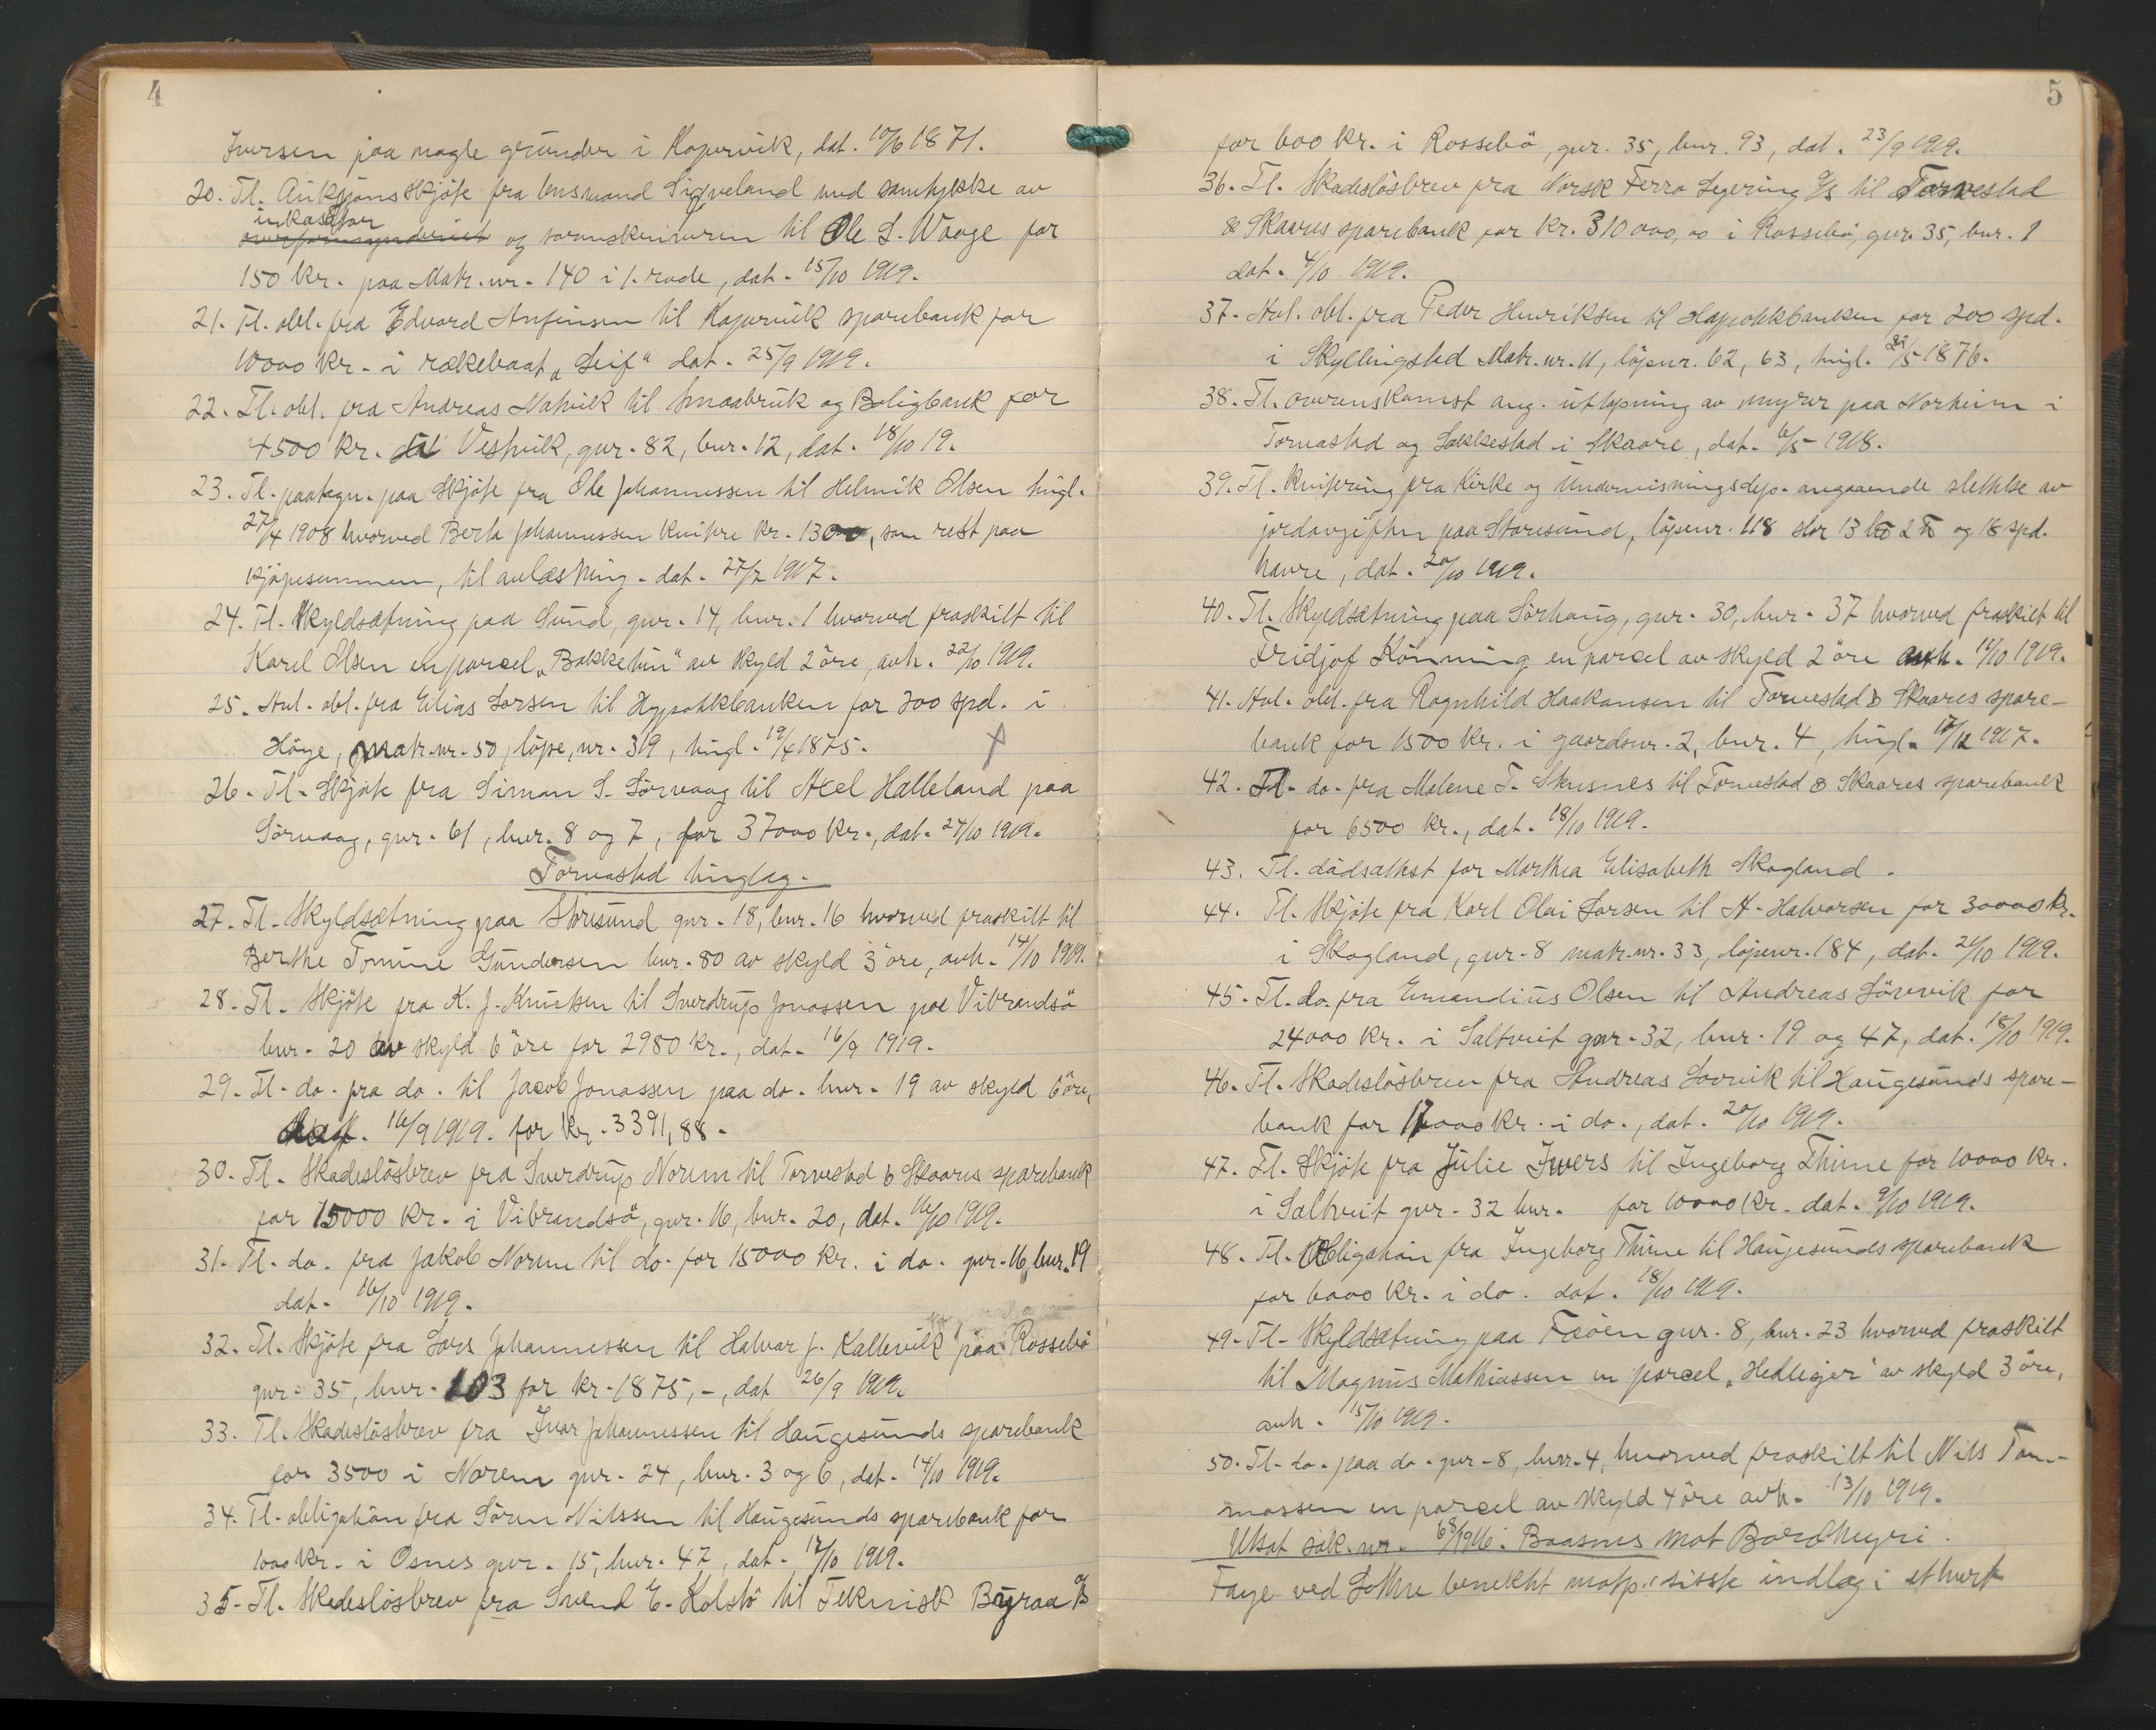 4
Iversen paa nogle grunder i Kopervik, dat. 10/6 1871.
20. Tl. Auksjonsskjöte fra lensmand Sigveland med samtykke av
inkassator
overformynderiet og sorenskriveren til Ole L. Waage for
150 kr. paa Matr. nr. 140 i 1. rode, dat. 15/10 1919.
21. Tl. obl. fra Edvard Anfinsen til Kopervik sparebank for
10000 kr. i rækebaat „Leif“ dat. 25/9 1919.
22. Tl. obl. fra Andreas Natvik til Smaabruk og Boligbank for
4500 kr. Vestvik, gnr. 82, bnr. 12, dat. 18/10 19.
23. Tl. paategn. paa skjöte fra Ole Johannessen til Helmik Olsen tingl.
27/4 1908 hvorved Berta Johannessen kvitere kr. 1300, som rest paa
kjöpesummen, til avlæsning. dat. 27/7 1917.
24. Tl. Skyldsætning paa Sund, gnr. 14, bnr. 1 hvorved fraskilt til
Karel Olsen en parcel „Bakketun“ av skyld 2 öre, avh. 22/10 1919.
25. Avl. obl. fra Elias Larsen til Hypotekbanken for 200 spd. i
Höye, matr. nr. 50, löpe, nr. 319, tingl. 19/4 1875.
26. Tl. Skjöte fra Simon S. Sörvaag til Axel Halleland paa
Sörvaag, gnr. 61, bnr. 8 og 7, for 37000 kr., dat. 24/10 1919.
Torvastad tinglag.
27. Tl. Skyldsætning paa Storesund gnr. 18, bnr. 16 hvorved fraskilt til
Berthe Tomine Gundersen bnr. 80 av skyld 3 öre, avh. 14/10 1919.
28. Tl. Skjöte fra K. J. Knutsen til Sverdrup Jonassen paa Vibrandsö
bnr. 20 av skyld 6 öre for 2980 kr., dat. 16/9 1919.
29. Tl. do. fra do. til Jacob Jonassen paa do. bnr. 19 av skyld 6 öre,
16/9 1919. for kr. 3391,88.
30. Tl. Skadeslösbrev fra Sverdrup Norum til Torvestad & Skaares sparebank
for 15000 kr. i Vibrandsö, gnr. 16, bnr. 20, dat. 16/10 1919.
31. Tl. do. fra Jakob Norum til do. for 15000 kr. i do. gnr. 16, bnr. 19
dat. 16/10 1919.
32. Tl. Skjöte fra Lars Johannessen til Halvar J. Kallevik paa Rossebö
gnr. 35, bnr. 103 for kr. 1875,-, dat 26/9 1919.
33. Tl. Skadeslösbrev fra Ivar Johannessen til Haugesunds sparebank
for 3500 i Norem gnr. 24, bnr. 3 og 6, dat. 14/10 1919.
34. Tl. obligation fra Sören Nilssen til Haugesunds sparebank for
1000 kr. i Osnes gnr. 15, bnr. 47, dat. 17/10 1919.
35. Tl. Skadeslösbrev fra Svend E. Kolstö til Teknisk Byraa A/S
5
for 600 kr. i Rossebö, gnr. 35, bnr. 93, dat. 23/9 1919.
36. Tl. Skadeslösbrev fra Norsk Ferro Legering A/S til Torvestad
& Skaares sparebank for kr. 310000,00 i Rossebö, gnr. 35, bnr. 1
dat. 4/10 1919.
37. Avl. obl. fra Peder Henriksen til Hypotekbanken for 200 spd.
i Skyllingstad Matr. nr. 11, löpenr. 62, 63, tingl. 22/5 1876.
38. Tl. overenskomst ang. utlöpning av myrer paa Norheim i
Torvastad og Lakkestad i Skaare, dat. 6/5 1918.
39. Tl. kvitering fra Kirke og Undervisningsdep. angaaende slettelse av
jordavgiften paa Storesund, löpenr. 118 stor 13 2 og 18 spd.
havre, dat. 20/10 1919.
40. Tl. Skyldsætning paa Sörhaug, gnr. 30, bnr. 37 hvorved fraskilt til
Fridjof Könning en parcel av skyld 2 öre avh. 16/10 1919.
41. Avl. obl. fra Ragnhild Haakonsen til Torvestad & Skaares spare-
bank for 1500 kr. i gaardsnr. 2, bnr. 4, tingl. 17/12 1917.
42. Tl. do. fra Malene T. Stusnes til Torvestad & Skaares sparebank
for 6500 kr., dat. 18/10 1919.
43. Tl. dödsattest for Marthea Elisabeth Skogland.
44. Tl. Skjöte fra Karl Olai Larsen til A. Halvorsen for 30000 kr.
i Skogland, gnr. 8 matr. nr. 33, löpenr. 184, dat. 21/10 1919.
45. Tl. do. fra Emandius Olsen til Andreas Lövvik for
24000 kr. i Saltveit gnr. 32, bnr. 19 og 47, dat. 18/10 1919.
46. Tl. Skadeslösbrev fra Andreas Lovvik til Haugesunds spare-
bank for 17000 kr. i do., dat. 20/10 1919.
47. Tl. Skjöte fra Julie Ivers til Ingeborg Thime for 10000 kr.
i Saltveit gnr. 32 bnr. for 10000 kr. dat. 9/10 1919.
48. Tl. Obligation fra Ingeborg Thime til Haugesunds sparebank
for 6000 kr. i do. dat. 18/10 1919.
49. Tl. Skyldsætning paa Fæöen gnr. 8, bnr. 23 hvorved fraskilt
til Magnus Mathiassen en parcel „Hedlesjer“ av skyld 3 öre,
avh. 15/10 1919.
50. Tl. do. paa do. gnr. 8, bnr. 4, hvorved fraskilt til Nils Tom-
massen en parcel av skyld 4 öre avh. 13/10 1919.
Utsat sak. nr. 68/1916: Baasnes mot Bardheyri.
Faye ved Lothe benektet motp. sisste indlæg i ethvert